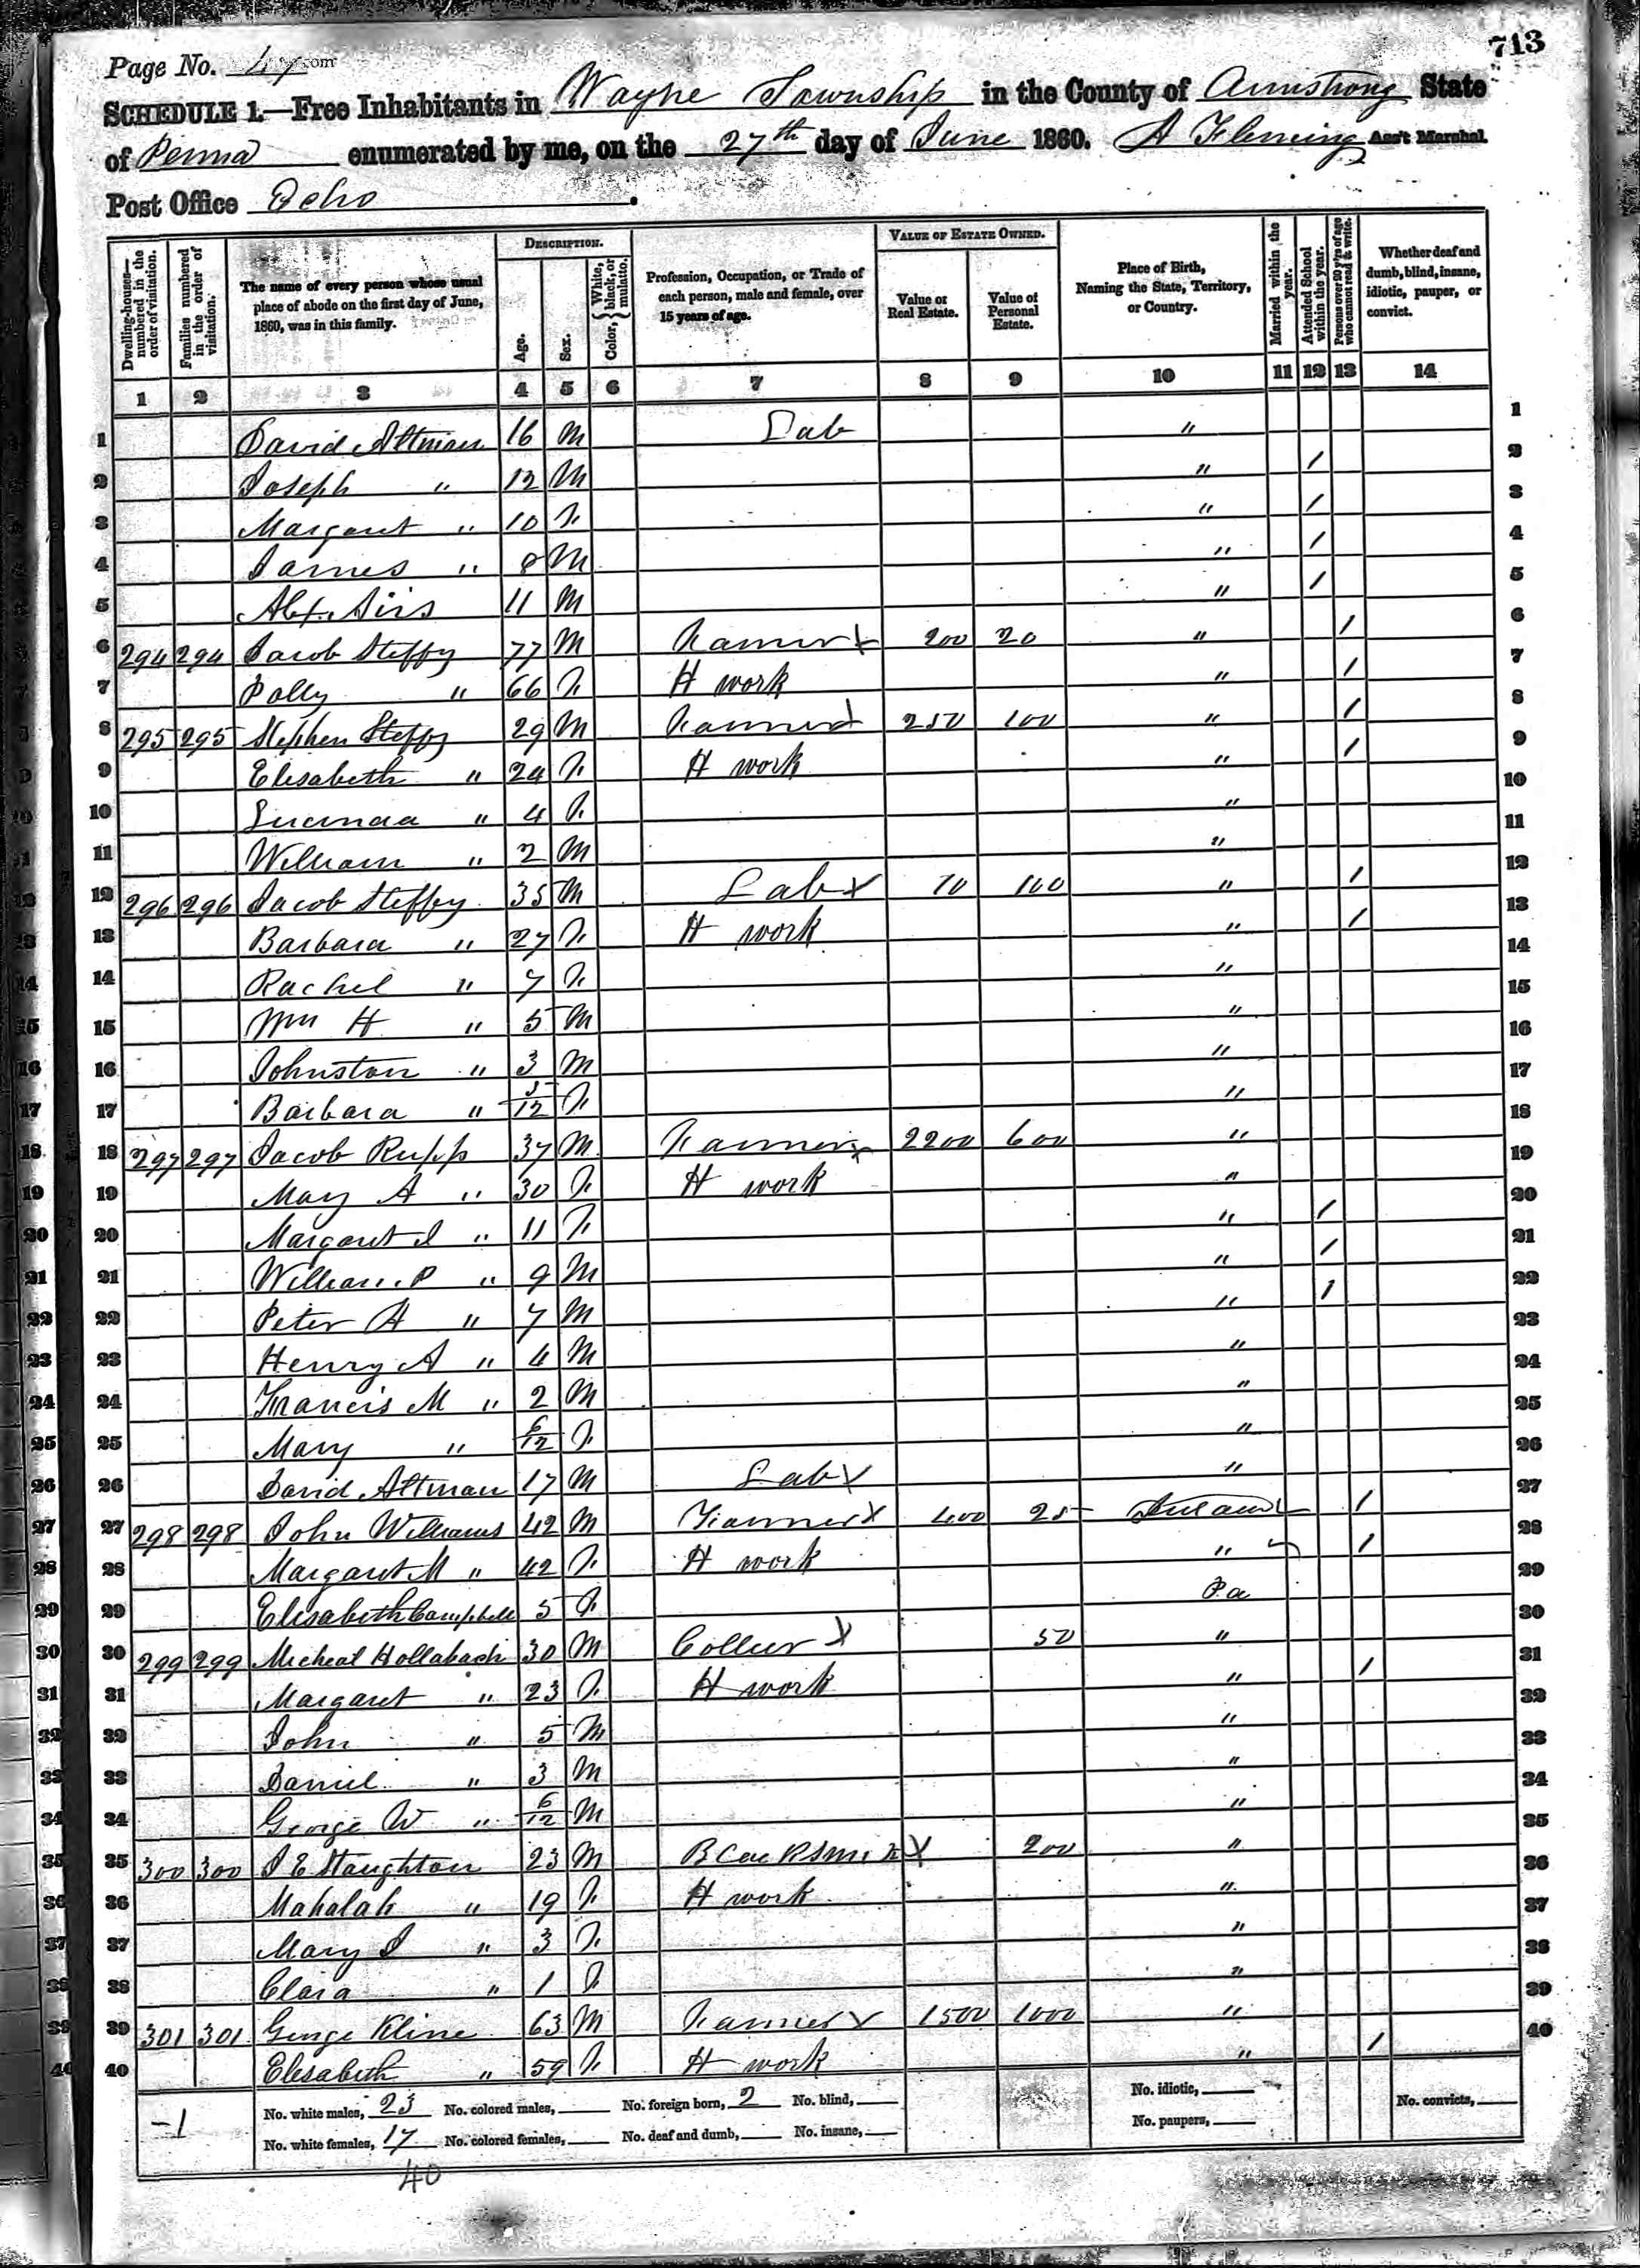 713
Page No. 47 com
SCHEDULE 1.—Free Inhabitants in Wayne Township in the County of Armstrong State
of Penna enumerated by me, on the 27th day of June 1860. A Fleming Ass't Marshal.
Post Office Echo.
Dwelling-houses—numbered in the order of visitation. Families numbered in the order of visitation. The name of every person whose usual place of abode on the first day of June, 1860, was in this family. DESCRIPTION. Age. Sex. Color, { White, black, or mulatto. Profession, Occupation, or Trade of each person, male and female, over 15 years of age. VALUE OF ESTATE OWNED. Value of Real Estate. Value of Personal Estate. Place of Birth, Naming the State, Territory, or Country. Married within the year. Attended School within the year. Persons over 20 y'rs of age who cannot read & write. Whether deaf and dumb, blind, insane, idiotic, pauper, or convict.
1 2 3 4 5 6 7 8 9 10 11 12 13 14
1 David Altman 16 M Lab " 1
2 Joseph " 12 M " / 2
3 Margaret " 10 F " / 3
4 James " 8 M " / 4
5 Alex. Sirs 11 M " / 5
6 294 294 Jacob Steffy 77 M Farmer x 200 20 " / 6
7 Polly " 66 F H work " / 7
8 295 295 Stephen Steffy 29 M Farmer x 250 100 " / 8
9 Elisabeth " 24 F H work " / 9
10 Lucinda " 4 F " 10
11 William " 2 M " 11
12 296 296 Jacob Steffy 35 M Lab x 70 100 " / 12
13 Barbara " 27 F H work " / 13
14 Rachel " 7 F " 14
15 Wm H " 5 M " 15
16 Johnston " 3 M " 16
17 Barbara " 3/12 F " 17
18 297 297 Jacob Rupp 37 M Farmer x 2200 600 " 18
19 Mary A " 30 F H work " 19
20 Margaret J " 11 F " / 20
21 William P " 9 M " / 21
22 Peter A " 7 M " / 22
23 Henry A " 4 M " 23
24 Francis M " 2 M " 24
25 Mary " 6/12 F " 25
26 David Altman 17 M Lab x " 26
27 298 298 John Williams 42 M Farmer x 400 25 Ireland / 27
28 Margaret M " 42 F H work " / 28
29 Elisabeth Campbell 5 F Pa 29
30 299 299 Micheal Hollabach 30 M Collier x 50 " 30
31 Margaret " 23 F H work " / 31
32 John " 5 M " 32
33 Daniel " 3 M " 33
34 George W " 6/12 M " 34
35 300 300 J E Staughton 23 M Blacksmith x 200 " 35
36 Mahalah " 19 F H work " 36
37 Mary J " 3 F " 37
38 Clara " 1 F " 38
39 301 301 George Kline 63 M Farmer x 1500 1000 " 39
40 Elesabeth " 59 F H work " / 40
-1 No. white males, 23 No. colored males, No. foreign born, 2 No. blind, No. idiotic, No. convicts,
No. white females, 17 No. colored females, No. deaf and dumb, No. insane, No. paupers,
40